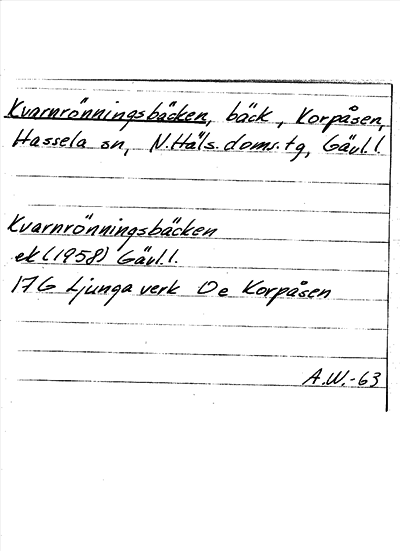 Kvarnrönningsbäcken, bäck, Korpåsen,
Hassela sn, N.Häls.doms.tg, Gävl.l.
Kvarnrönningsbäcken
ek (1958) Gävl.l.
17G Ljungaverk De Korpåsen
A.W.-63